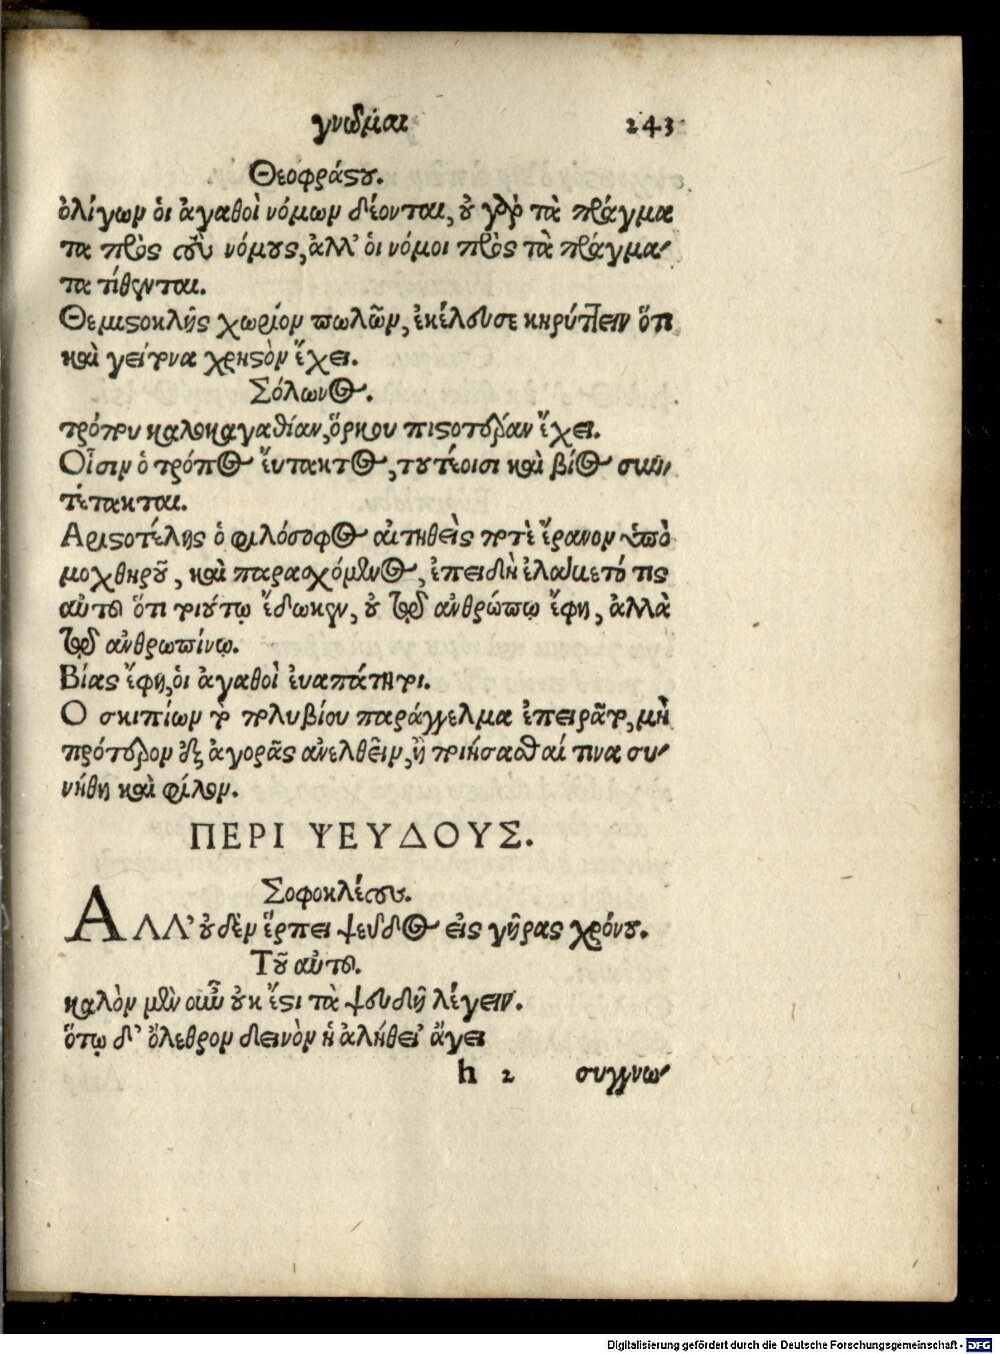 γνῶμαι 243
Θεοφράστου.
ὀλίγων οἱ ἀγαθοὶ νόμων δέονται, οὐ γὰρ τὰ πράγμα
τα πρὸς τοὺς νόμους, ἀλλ' οἱ νόμοι πρὸς τὰ πράγμα-
τα τίθενται.
Θεμιστοκλῆς χωρίον πωλῶν, ἐκέλευσε κηρύττειν ὅτι
καὶ γείτονα χρηστὸν ἔχει.
Σόλωνος.
τρόπου καλοκαγαθίαν, ὅρκου πιστοτέραν ἔχει.
Οἷσιν ὁ τρόπος εὔτακτος, τουτέοισι καὶ βίος συν
τέτακται.
Αριστοτέλης ὁ φιλόσοφος αἰτηθεὶς ποτὲ ἔρανον ὑπὸ
μοχθηροῦ, καὶ παρασχόμενος, ἐπειδὴ ἐλοιμετό τις
αὐτῷ ὅτι τοιούτῳ ἔδωκεν, οὐ τῷ ἀνθρώπῳ ἔφη, ἀλλὰ
τῷ ἀνθρωπίνῳ.
Βίας ἔφη, οἱ ἀγαθοὶ εὐαπάτητοι.
Ο σκιπίων τὸ πολυβίου παράγγελμα ἐπειρᾶτο, μὴ
πρότερον ἐξ ἀγορᾶς ἀνελθεῖν, ἢ ποιήσασθαί τινα συ-
νήθη καὶ φίλον.
ΠΕΡΙ ΨΕΥΔΟΥΣ.
Σοφοκλέους.
ΑΛΛ' οὐδὲν ἕρπει ψεῦδος εἰς γῆρας χρόνου.
Τοῦ αὐτοῦ.
καλὸν μὲν οὖν οὐκ ἔστι τὰ ψευδῆ λέγειν.
ὅτῳ δ' ὄλεθρον δεινὸν ἡ ἀλήθει' ἄγει
h 2 συγγνω-
Digitalisierung gefördert durch die Deutsche Forschungsgemeinschaft - DFG